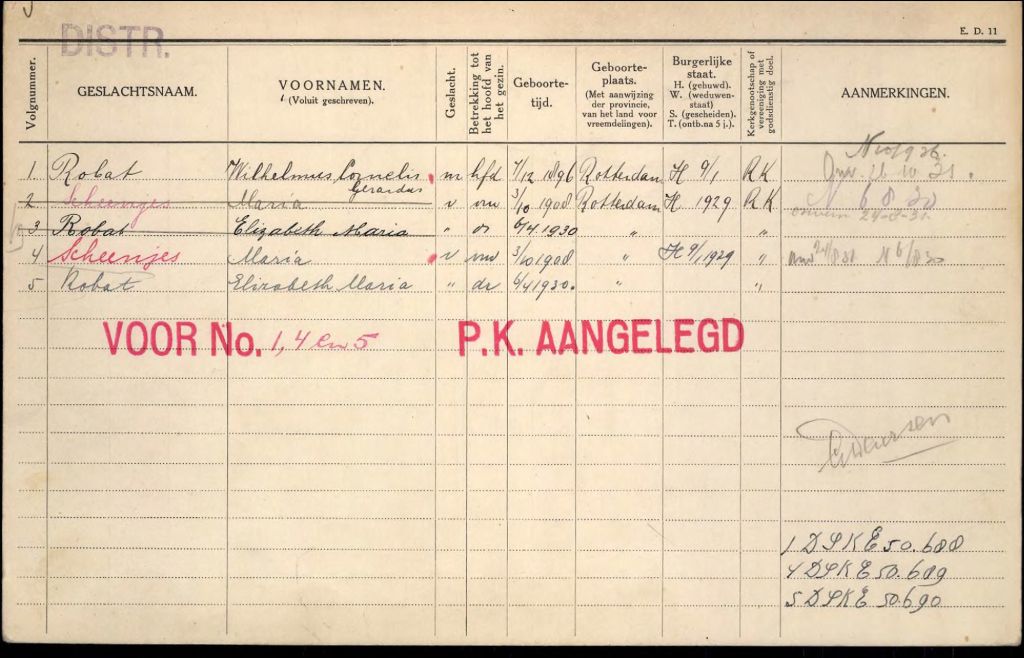 DISTR.
E. D. 11
Volgnummer.
GESLACHTSNAAM.
VOORNAMEN.
(Voluit geschreven).
Geslacht.
Betrekking tot
het hoofd van
het gezin.
Geboorte-
tijd.
Geboorte-
plaats.
(Met aanwijzing
der provincie,
van het land voor
vreemdelingen).
Burgerlijke
staat.
H. (gehuwd).
W. (weduwen-
staat)
S. (gescheiden).
T. (ontb. na 5 j.).
Kerkgenootschap of
vereeniging met
godsdienstig doel.
AANMERKINGEN.
1. Robat Wilhelmus Cornelis m hfd 7/12 1896 Rotterdam H 9/1 RK
Gerardus
2 Scheenjes Maria v vw 3/10 1908 Rotterdam H 1929 RK 6 8 30
3 Robat Elizabeth Maria " dr 6/4 1930 " " 24-8-31
4 Scheenjes Maria v vw 3/10 1908 " H 9/1 1929 " 24/8 31 N 6/8 30
5 Robat Elizabeth Maria " dr 6/4 1930. " "
VOOR No. 1, 4 en 5 P.K. AANGELEGD
1 DPKE 50.688
4 DPKE 50.689
5 DPKE 50.690